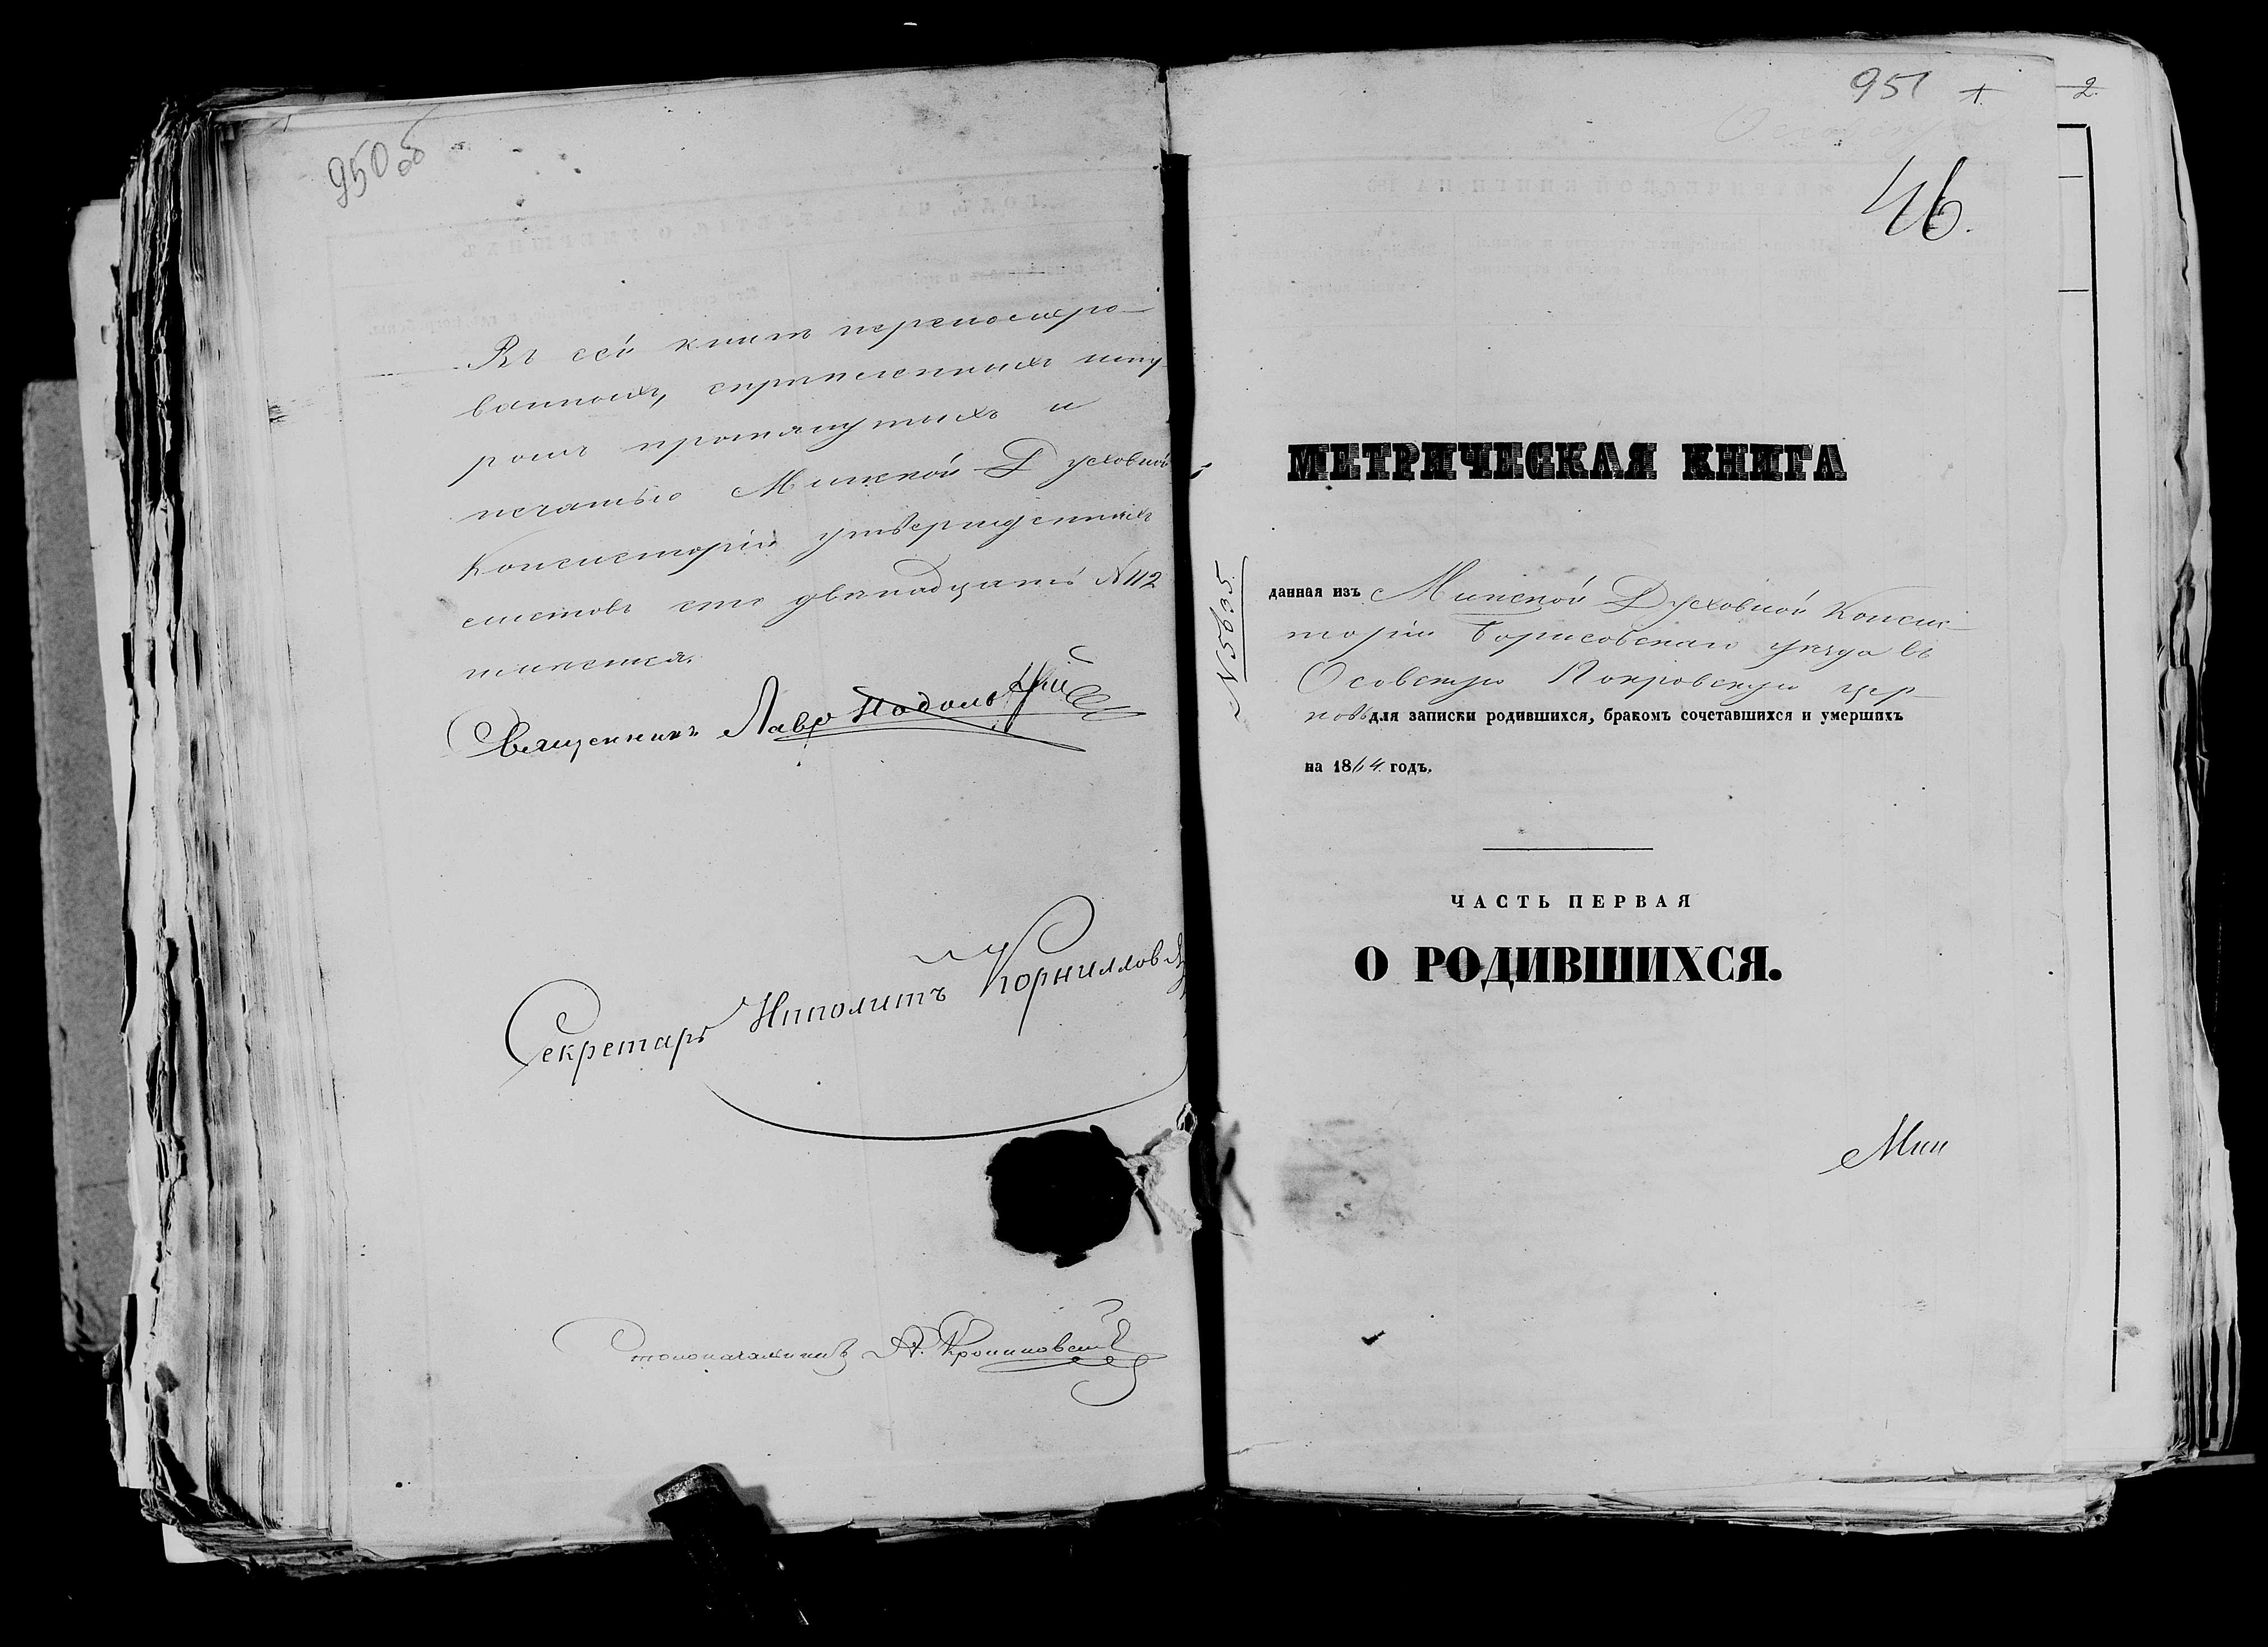 950об
Въ сей книгѣ перенумеро-
ванныхъ, скрѣпленныхъ шну-
ромъ протянутыхъ и
печатью Минской Духовной
Консисторіи утвержденныхъ
листовъ сто двѣнадцать N 112
имѣется.
Священникъ Лавр Подольскій
Секретарь Ипполитъ Корниллов
Столоначальникъ А.
951 1. 2.
46.
МЕТРИЧЕСКАЯ КНИГА
N 5695.
данная изъ Минской Духовной Консис-
торіи Борисовскаго уѣзда въ
Осовскую Покровскую цер-
ковь для записки родившихся, бракомъ сочетавшихся и умершихъ
на 1864 годъ.
ЧАСТЬ ПЕРВАЯ
О РОДИВШИХСЯ.
Мин